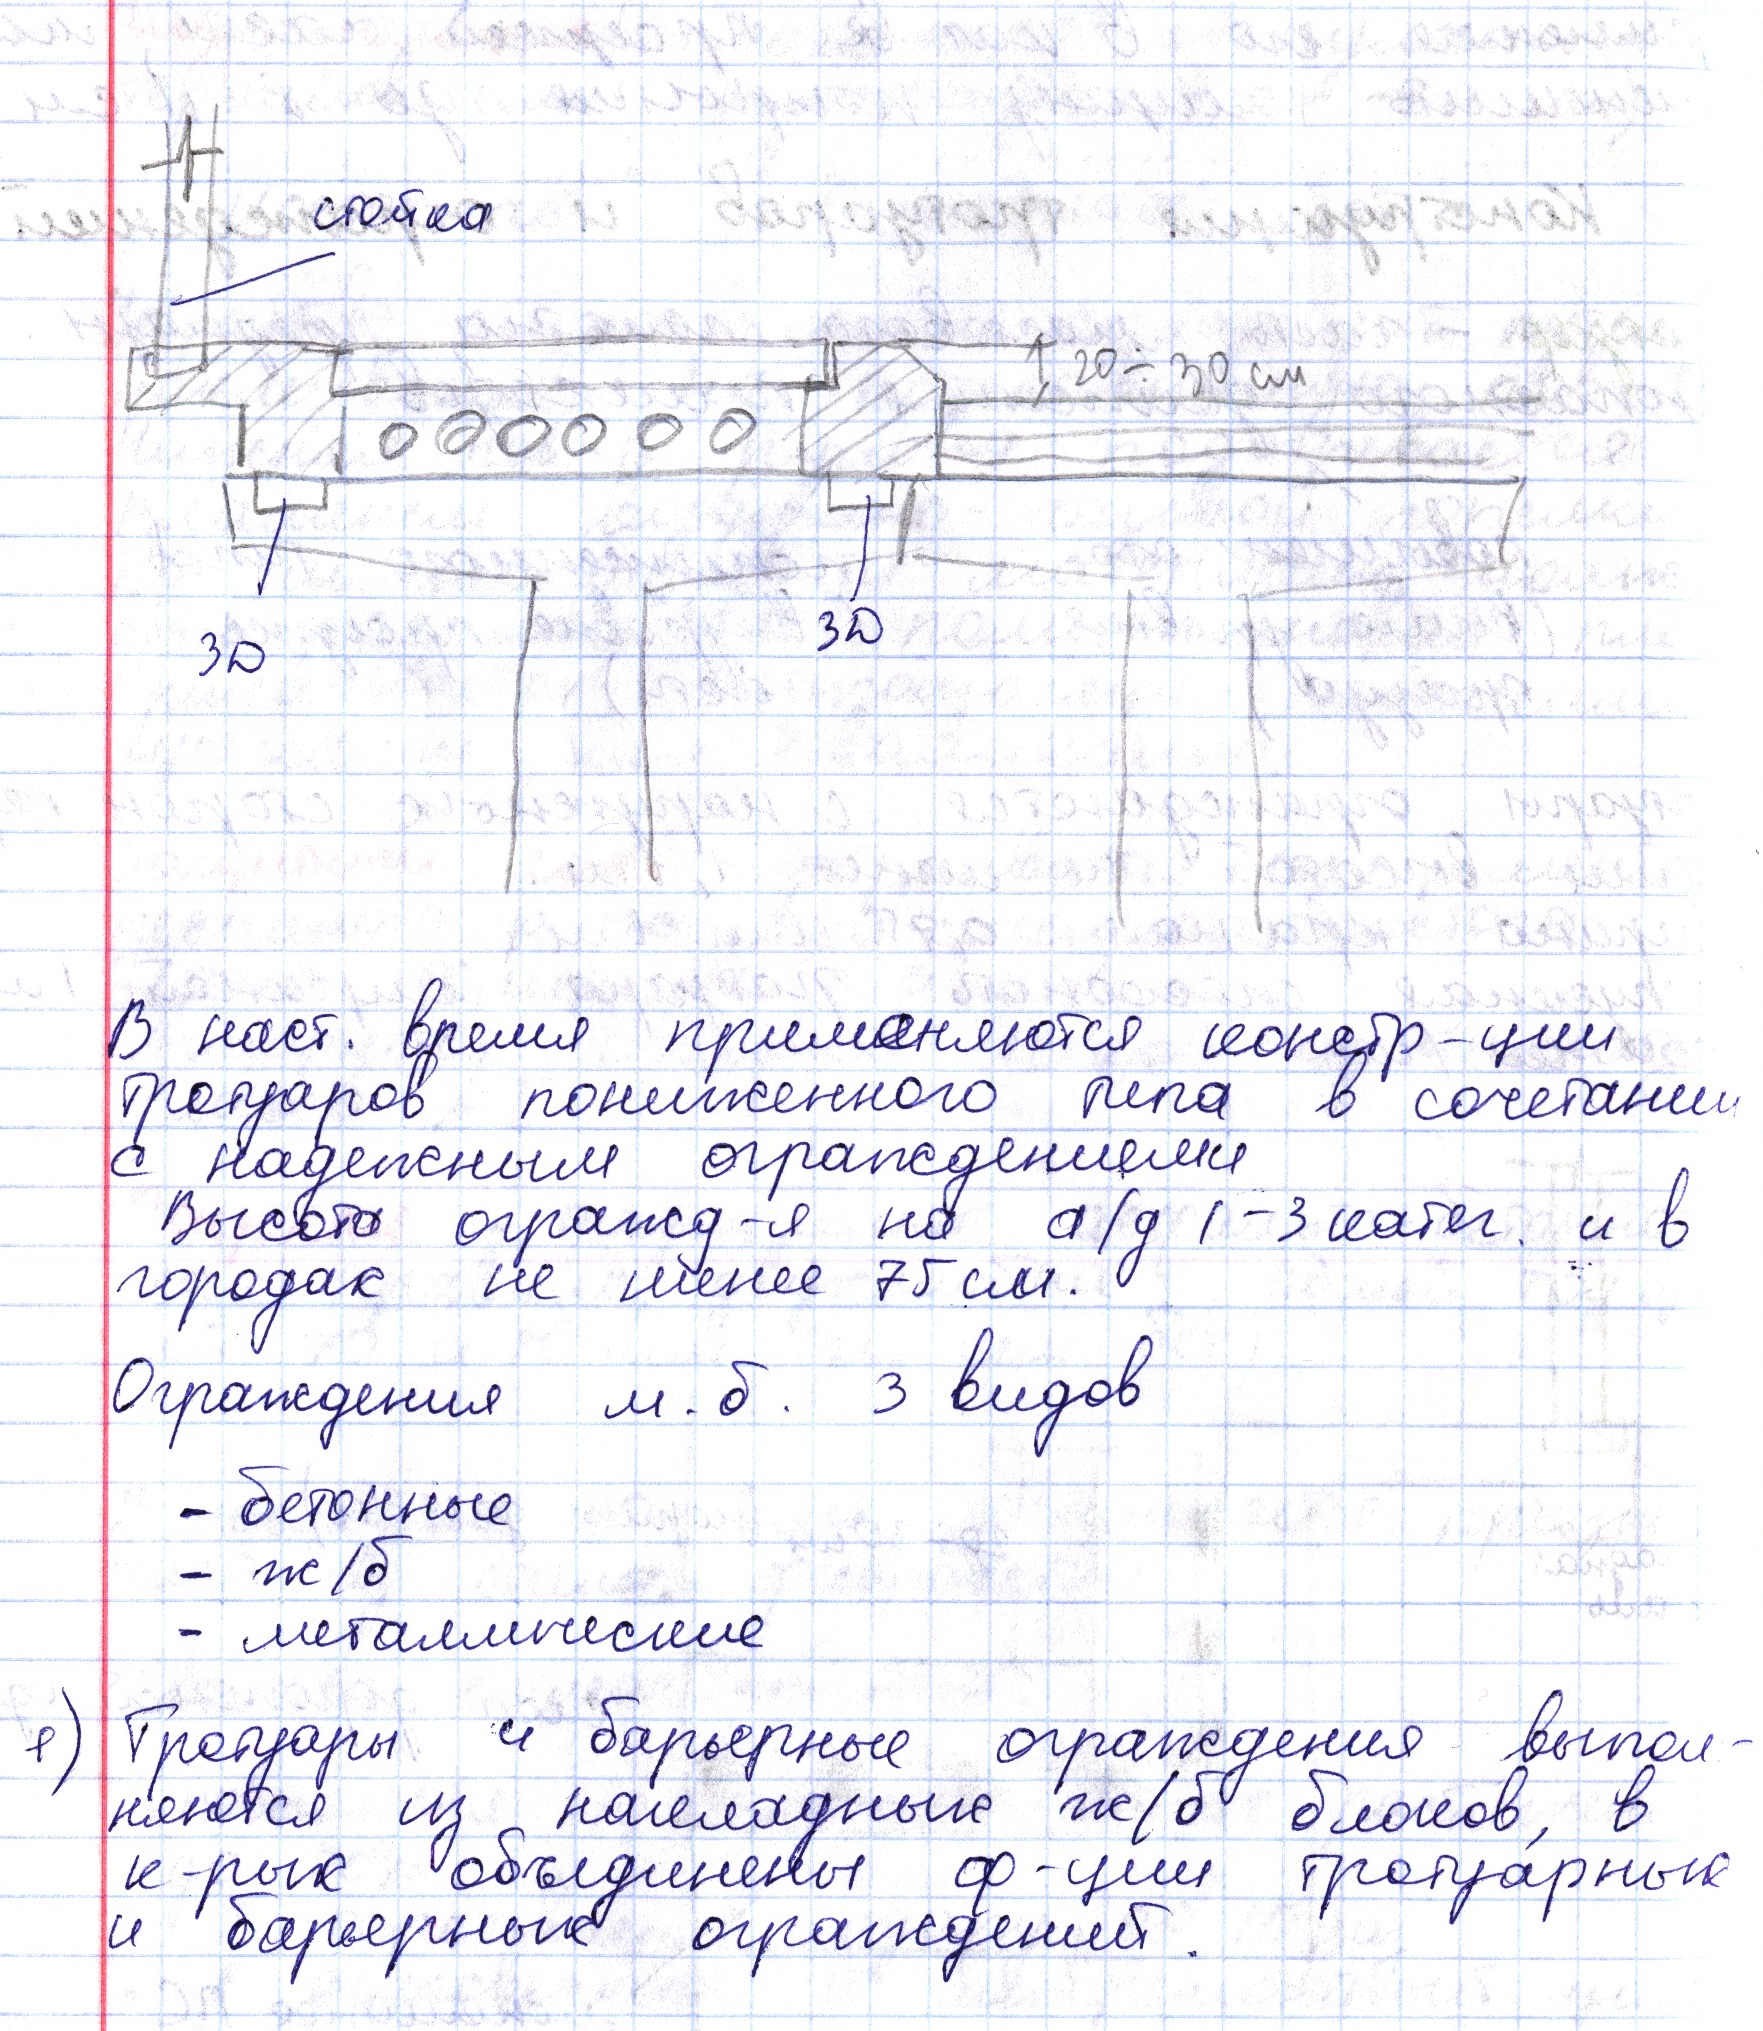 стойка
20÷30 см
ЗД
ЗД
В наст. время применяются констр-ции
тротуаров пониженного типа в сочетании
с надежным ограждениеми
Высота огражд-я на а/д 1-3 катег. и в
городах не менее 75 см.
Ограждения м.б. 3 видов
- бетонные
- ж/б
- металлические
1) Тротуары и барьерные ограждения выпол-
няются из накладных ж/б блоков, в
к-рых объединены ф-ции тротуарных
и барьерных ограждений.